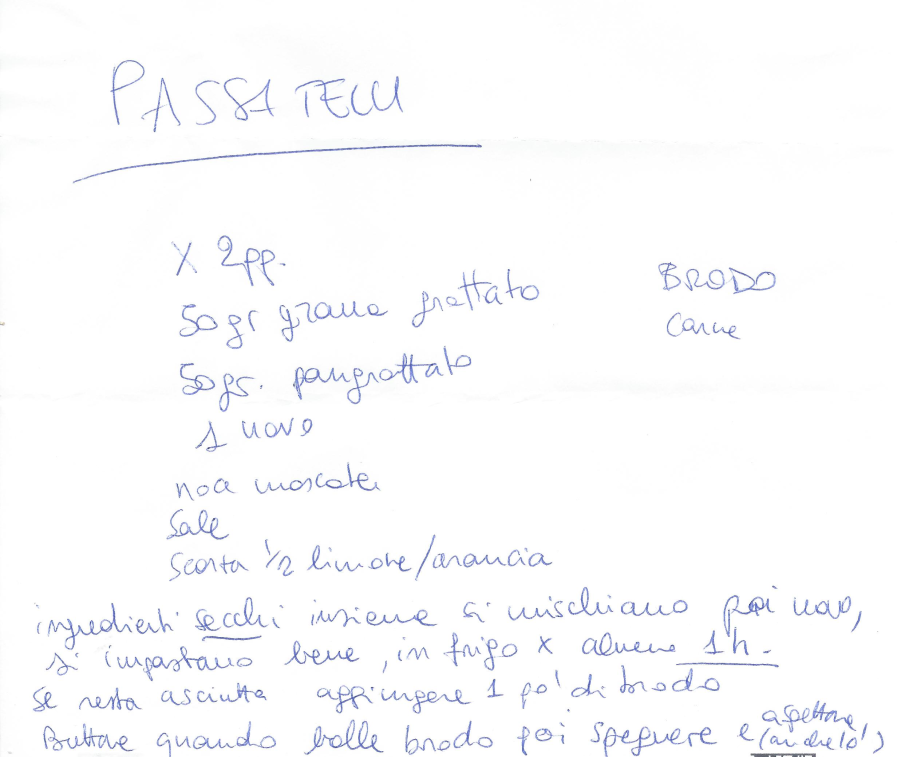 PASSATELLI
X 2pp.
50 gr grana grattato
BRODO
Carne
50 gr. pangrattato
1 uovo
noce moscata
Sale
Scorza 1/2 limone/arancia
ingredienti secchi insieme si mischiano poi uovo,
si impastano bene, in frigo x almeno 1h.
Se resta asciutta aggiungere 1 po' di brodo
Buttare quando bolle brodo poi spegnere e aspettare